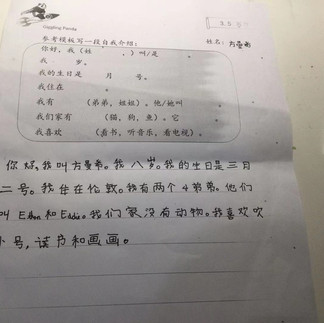 Giggling Panda
参考模板写一段自我介绍：
姓名：方曼弟
你好，我（姓 ，）叫/是 。
我 岁。
我的生日是 月 号。
我住在 。
我有 （弟弟，姐姐）。他/她叫 。
我们家有 （猫，狗，鱼）。它 。
我喜欢 （看书，听音乐，看电视）。
你好，我叫方曼弟。我八岁。我的生日是三月
二号。我住在伦敦。我有两个弟弟。他们
叫 Ethan 和 Eddie。我们家没有动物。我喜欢吹
小号，读书和画画。